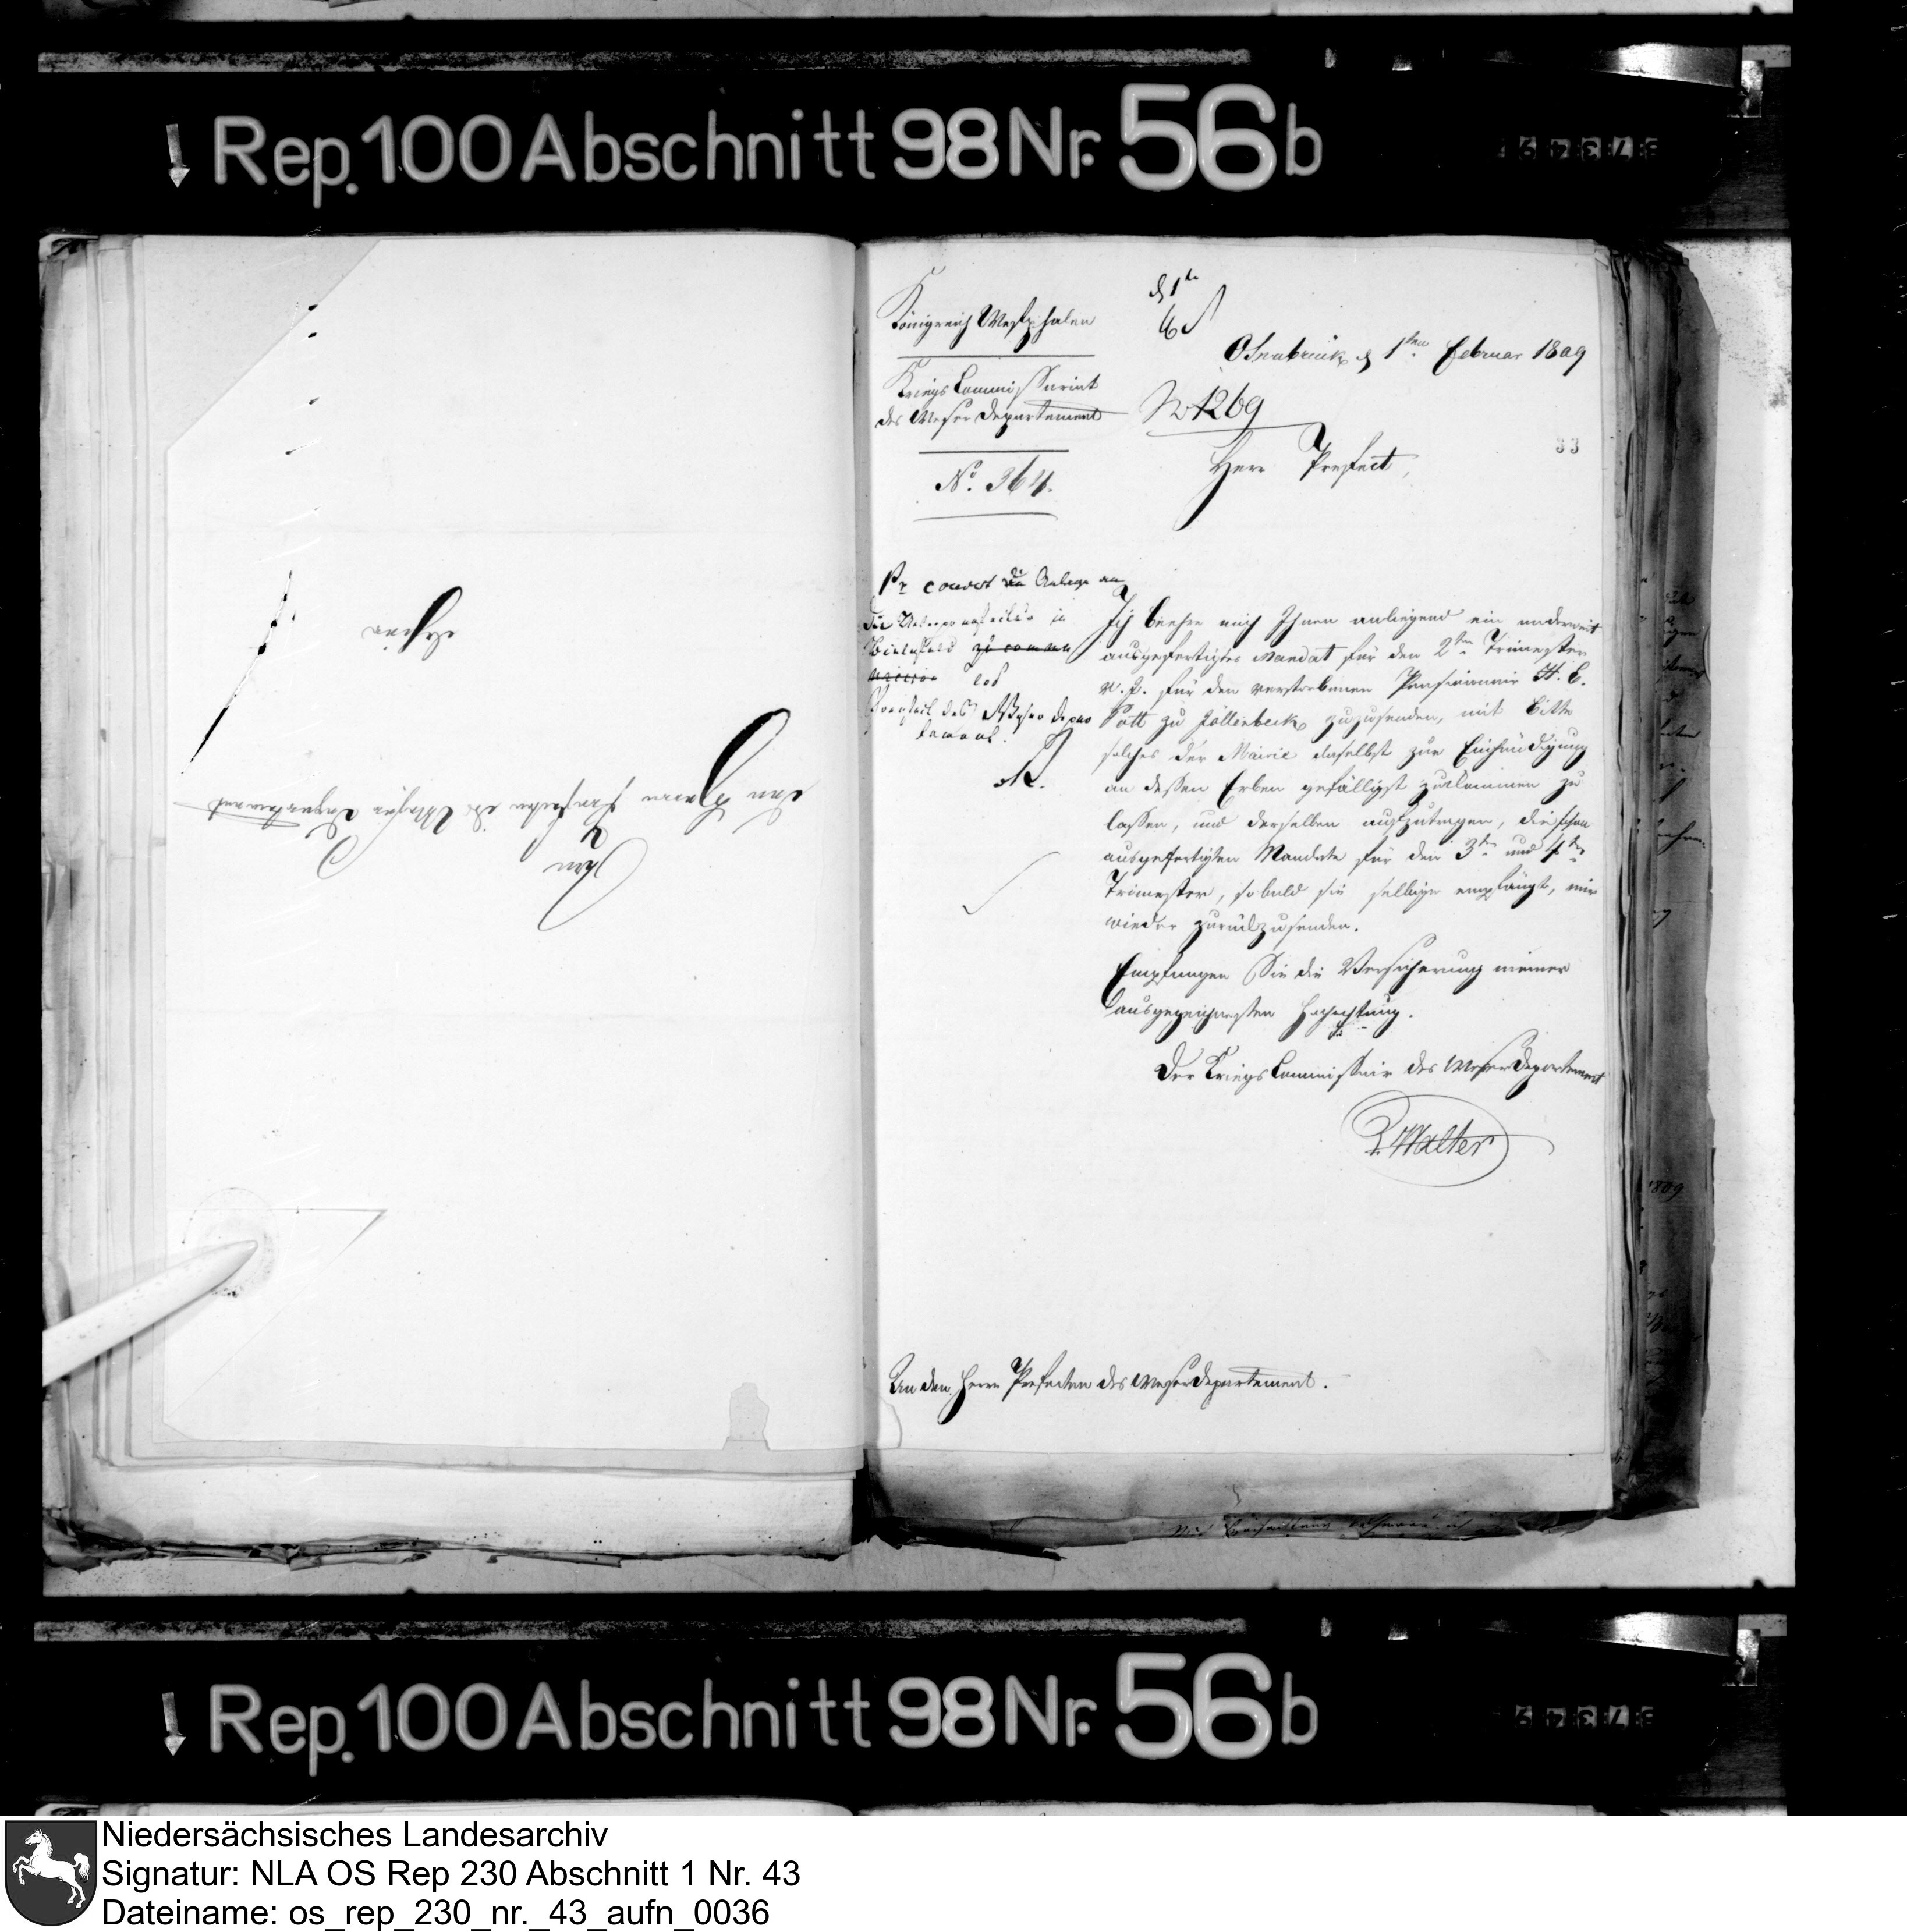 Rep. 100 Abschnitt 98 Nr. 56b
Königreich Westphalen
Kriegs Commissariat
des Weser Departement
No. 364.
Osnabrück d 1ten Februar 1809
No 1269
33
Herr Praefect,
Pr couvert die Anlage an
die Unterpraefectur in
Bielefeld
Praefect des Weser Depar
tement.
Ich beehre mich Ihnen anliegend ein anderweit
ausgefertigtes Mandat für den 2ten Trimester
v. J. für den verstorbenen Pensionair H. C.
Pott zu Jöllenbeck zuzusenden, mit Bitte
solches der Mairie daselbst zur Einhändigung
an dessen Erben gefälligst zukommen zu
lassen, und derselben aufzutragen, die schon
ausgefertigten Mandate für den 3ten und 4ten
Trimester, sobald sie selbige empfängt, mir
wieder zurückzusenden.
Empfangen Sie die Versicherung meiner
ausgezeichnesten Hochachtung.
Der Kriegs Commissair des Weser Departement
Walter
An den Herrn Praefecten des Weser Departement.
An
den Herrn Praefecten des Weser Departement
Hieher
1809
Rep. 100 Abschnitt 98 Nr. 56b
Niedersächsisches Landesarchiv
Signatur: NLA OS Rep 230 Abschnitt 1 Nr. 43
Dateiname: os_rep_230_nr._43_aufn_0036